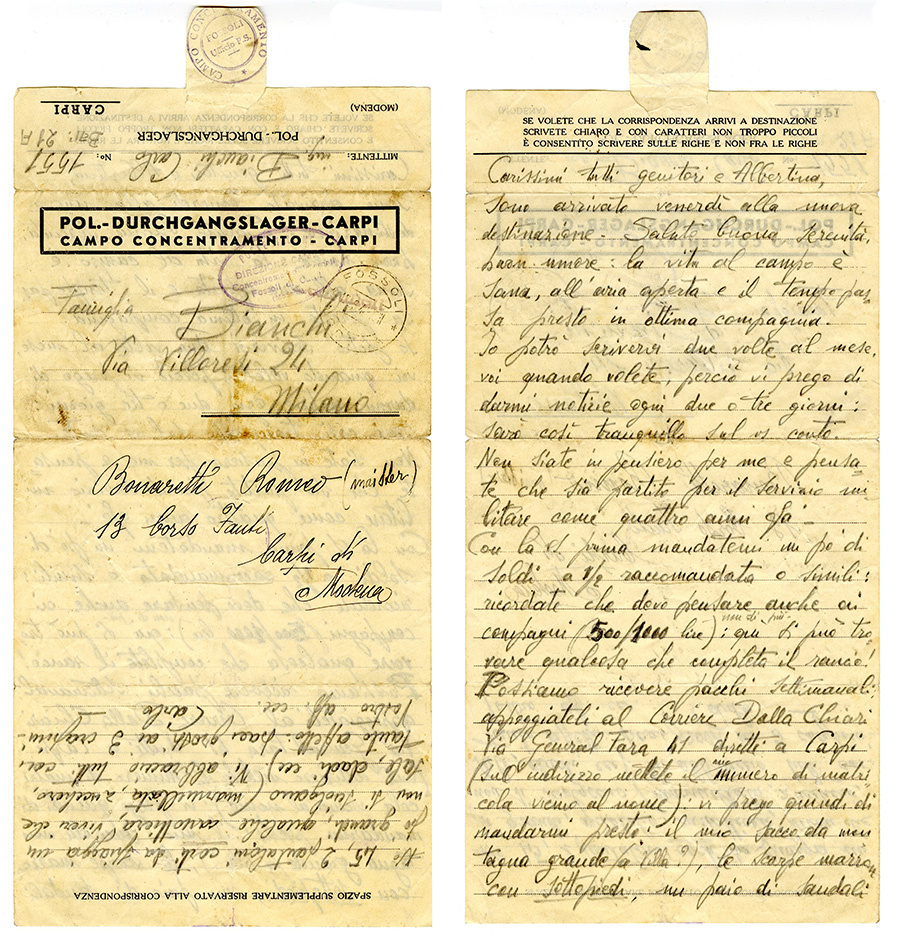 CAMPO CONCENTRAMENTO
FOSSOLI
Ufficio P.S.
CARPI
(MODENA)
POL.- DURCHGANGSLAGER
Bar. 21 A
MITTENTE: Bianchi Carlo No: 1551
POL.-DURCHGANGSLAGER-CARPI
CAMPO CONCENTRAMENTO - CARPI
DIREZIONE
Fossoli di
FOSSOLI
Famiglia
Bianchi
Via Villoresi 24
Milano
Bonaretti Romeo (maister)
13 Corso Fanti
Carpi di
Modena
SPAZIO SUPPLEMENTARE RISERVATO ALLA CORRISPONDENZA
No 45, 2 pantaloni corti da spiaggia un
po grandi, qualche canottiera, viveri che
non si sciolgano (marmellata, zucchero,
sale, dadi ec) Vi abbraccio tutti con
tanto affetto: baci grossi ai 3
Vostro aff. ec. Carlo
SE VOLETE CHE LA CORRISPONDENZA ARRIVI A DESTINAZIONE
SCRIVETE CHIARO E CON CARATTERI NON TROPPO PICCOLI
È CONSENTITO SCRIVERE SULLE RIGHE E NON FRA LE RIGHE
Carissimi tutti genitori e Albertina,
sono arrivato venerdì alla nuova
destinazione. Salute buona, serenità,
buon umore: la vita al campo è
sana, all'aria aperta e il tempo pas
sa presto in ottima compagnia.
Io potrò scrivervi due volte al mese,
voi quando volete, perciò vi prego di
darmi notizie ogni due o tre giorni:
sarò così tranquillo sul vs conto.
Non siate in pensiero per me e pensa-
te che sia partito per il servizio mi
litare come quattro anni fa.
Con la vs. prima mandatemi un pò di
soldi a 1/2 raccomandata o simili:
ricordate che devo pensare anche ai
compagni (500/1000 lire) non di più: qui si può tro
vare qualcosa che completa il rancio!
Possiamo ricevere pacchi settimanali:
appoggiateli al Corriere Dalla Chiari
Via General Fara 41 diretti a Carpi
(sull'indirizzo mettete il mio numero di matri
cola vicino al nome): vi prego quindi di
mandarmi presto: il mio sacco da mon
tagna grande (a Villa?), le scarpe marron
con sottopiedi, un paio di sandali